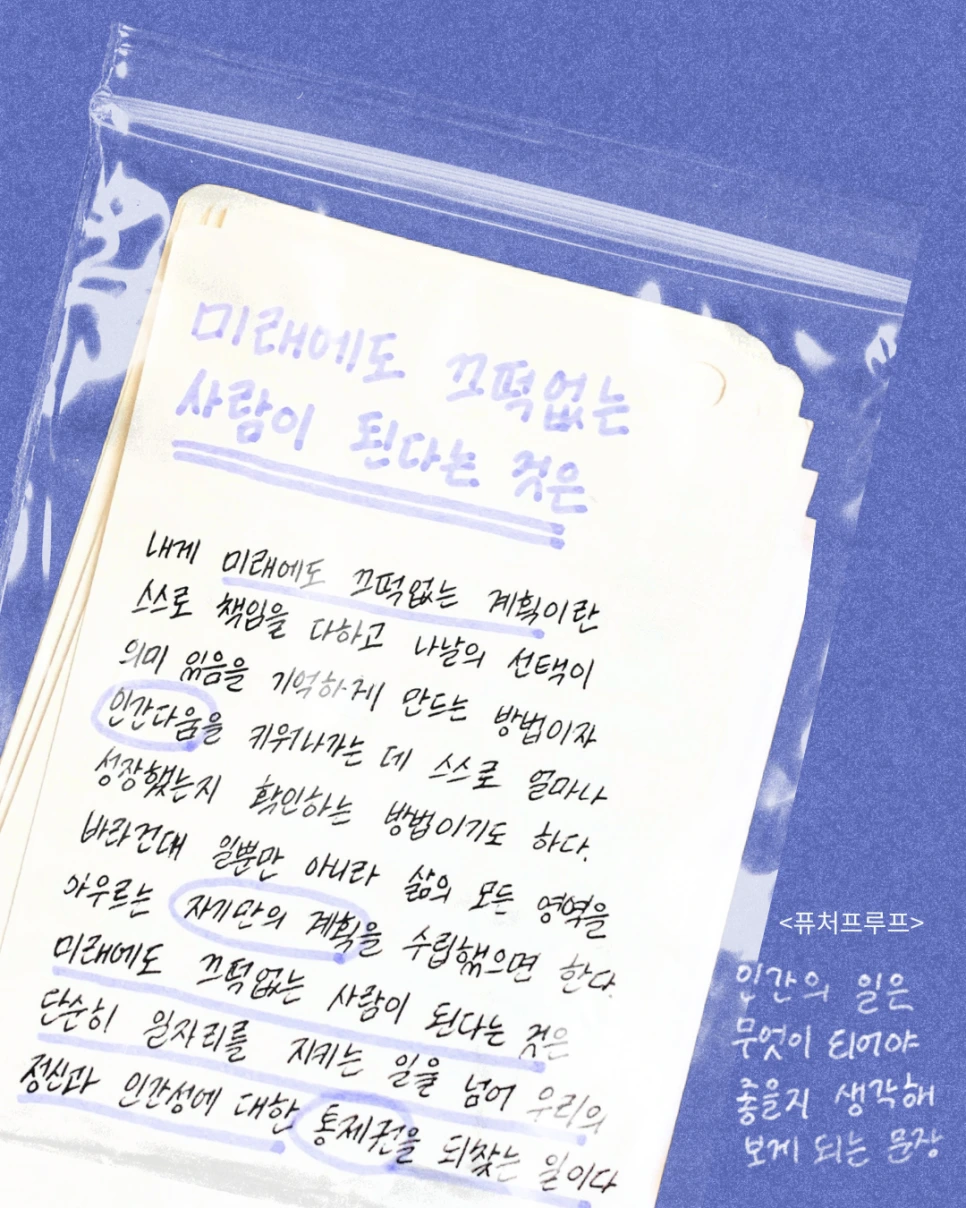 미래에도 끄떡없는
사람이 된다는 것은
내게 미래에도 끄떡없는 계획이란
스스로 책임을 다하고 나날의 선택이
의미 있음을 기억하게 만드는 방법이자
인간다움을 키워나가는 데 스스로 얼마나
성장했는지 확인하는 방법이기도 하다.
바라건대 일뿐만 아니라 삶의 모든 영역을
아우르는 자기만의 계획을 수립했으면 한다.
미래에도 끄떡없는 사람이 된다는 것은
단순히 일자리를 지키는 일을 넘어 우리의
정신과 인간성에 대한 통제권을 되찾는 일이다
<퓨처프루프>
인간의 일은
무엇이 되어야
좋을지 생각해
보게 되는 문장